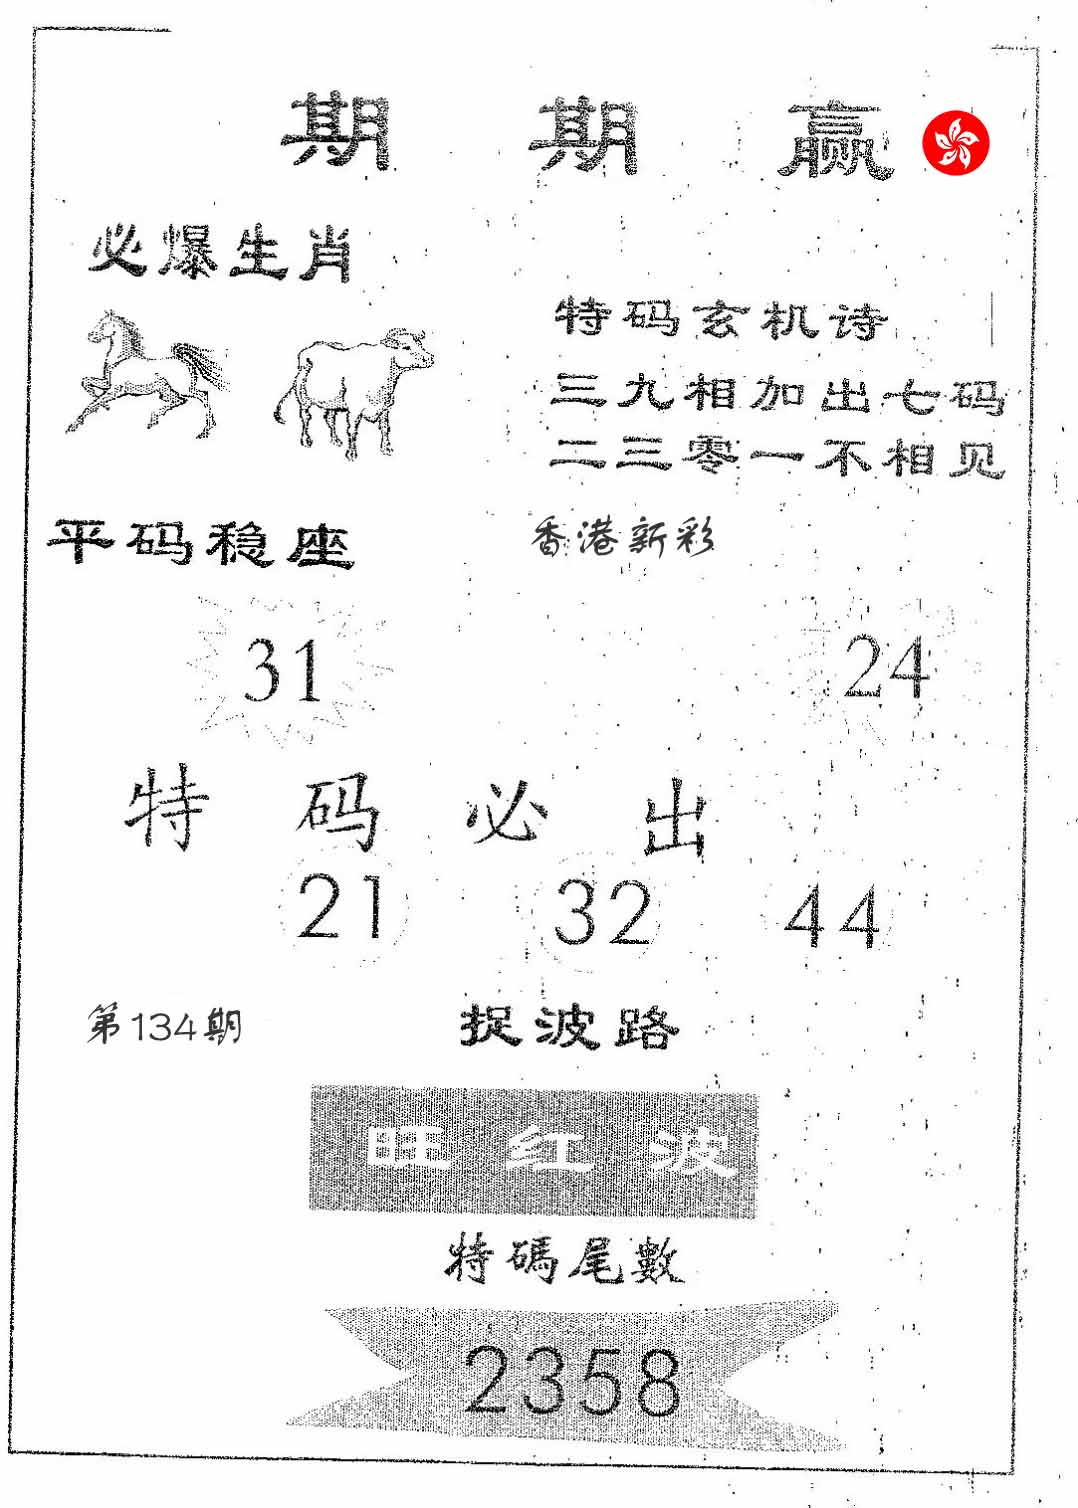 期期赢
必爆生肖
特码玄机诗
三九相加出七码
二三零一不相见
平码稳座
香港新彩
31
24
特码必出
21 32 44
第134期
捉波路
旺红波
特碼尾數
2358